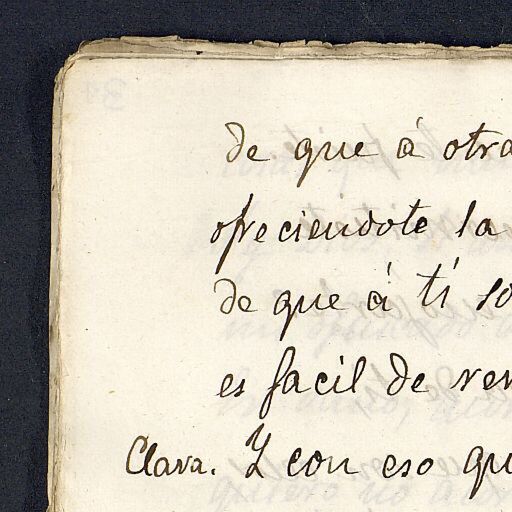 de que á otra
ofreciendote la
de que á tí so
es facil de ver
Clara. Y con eso qu